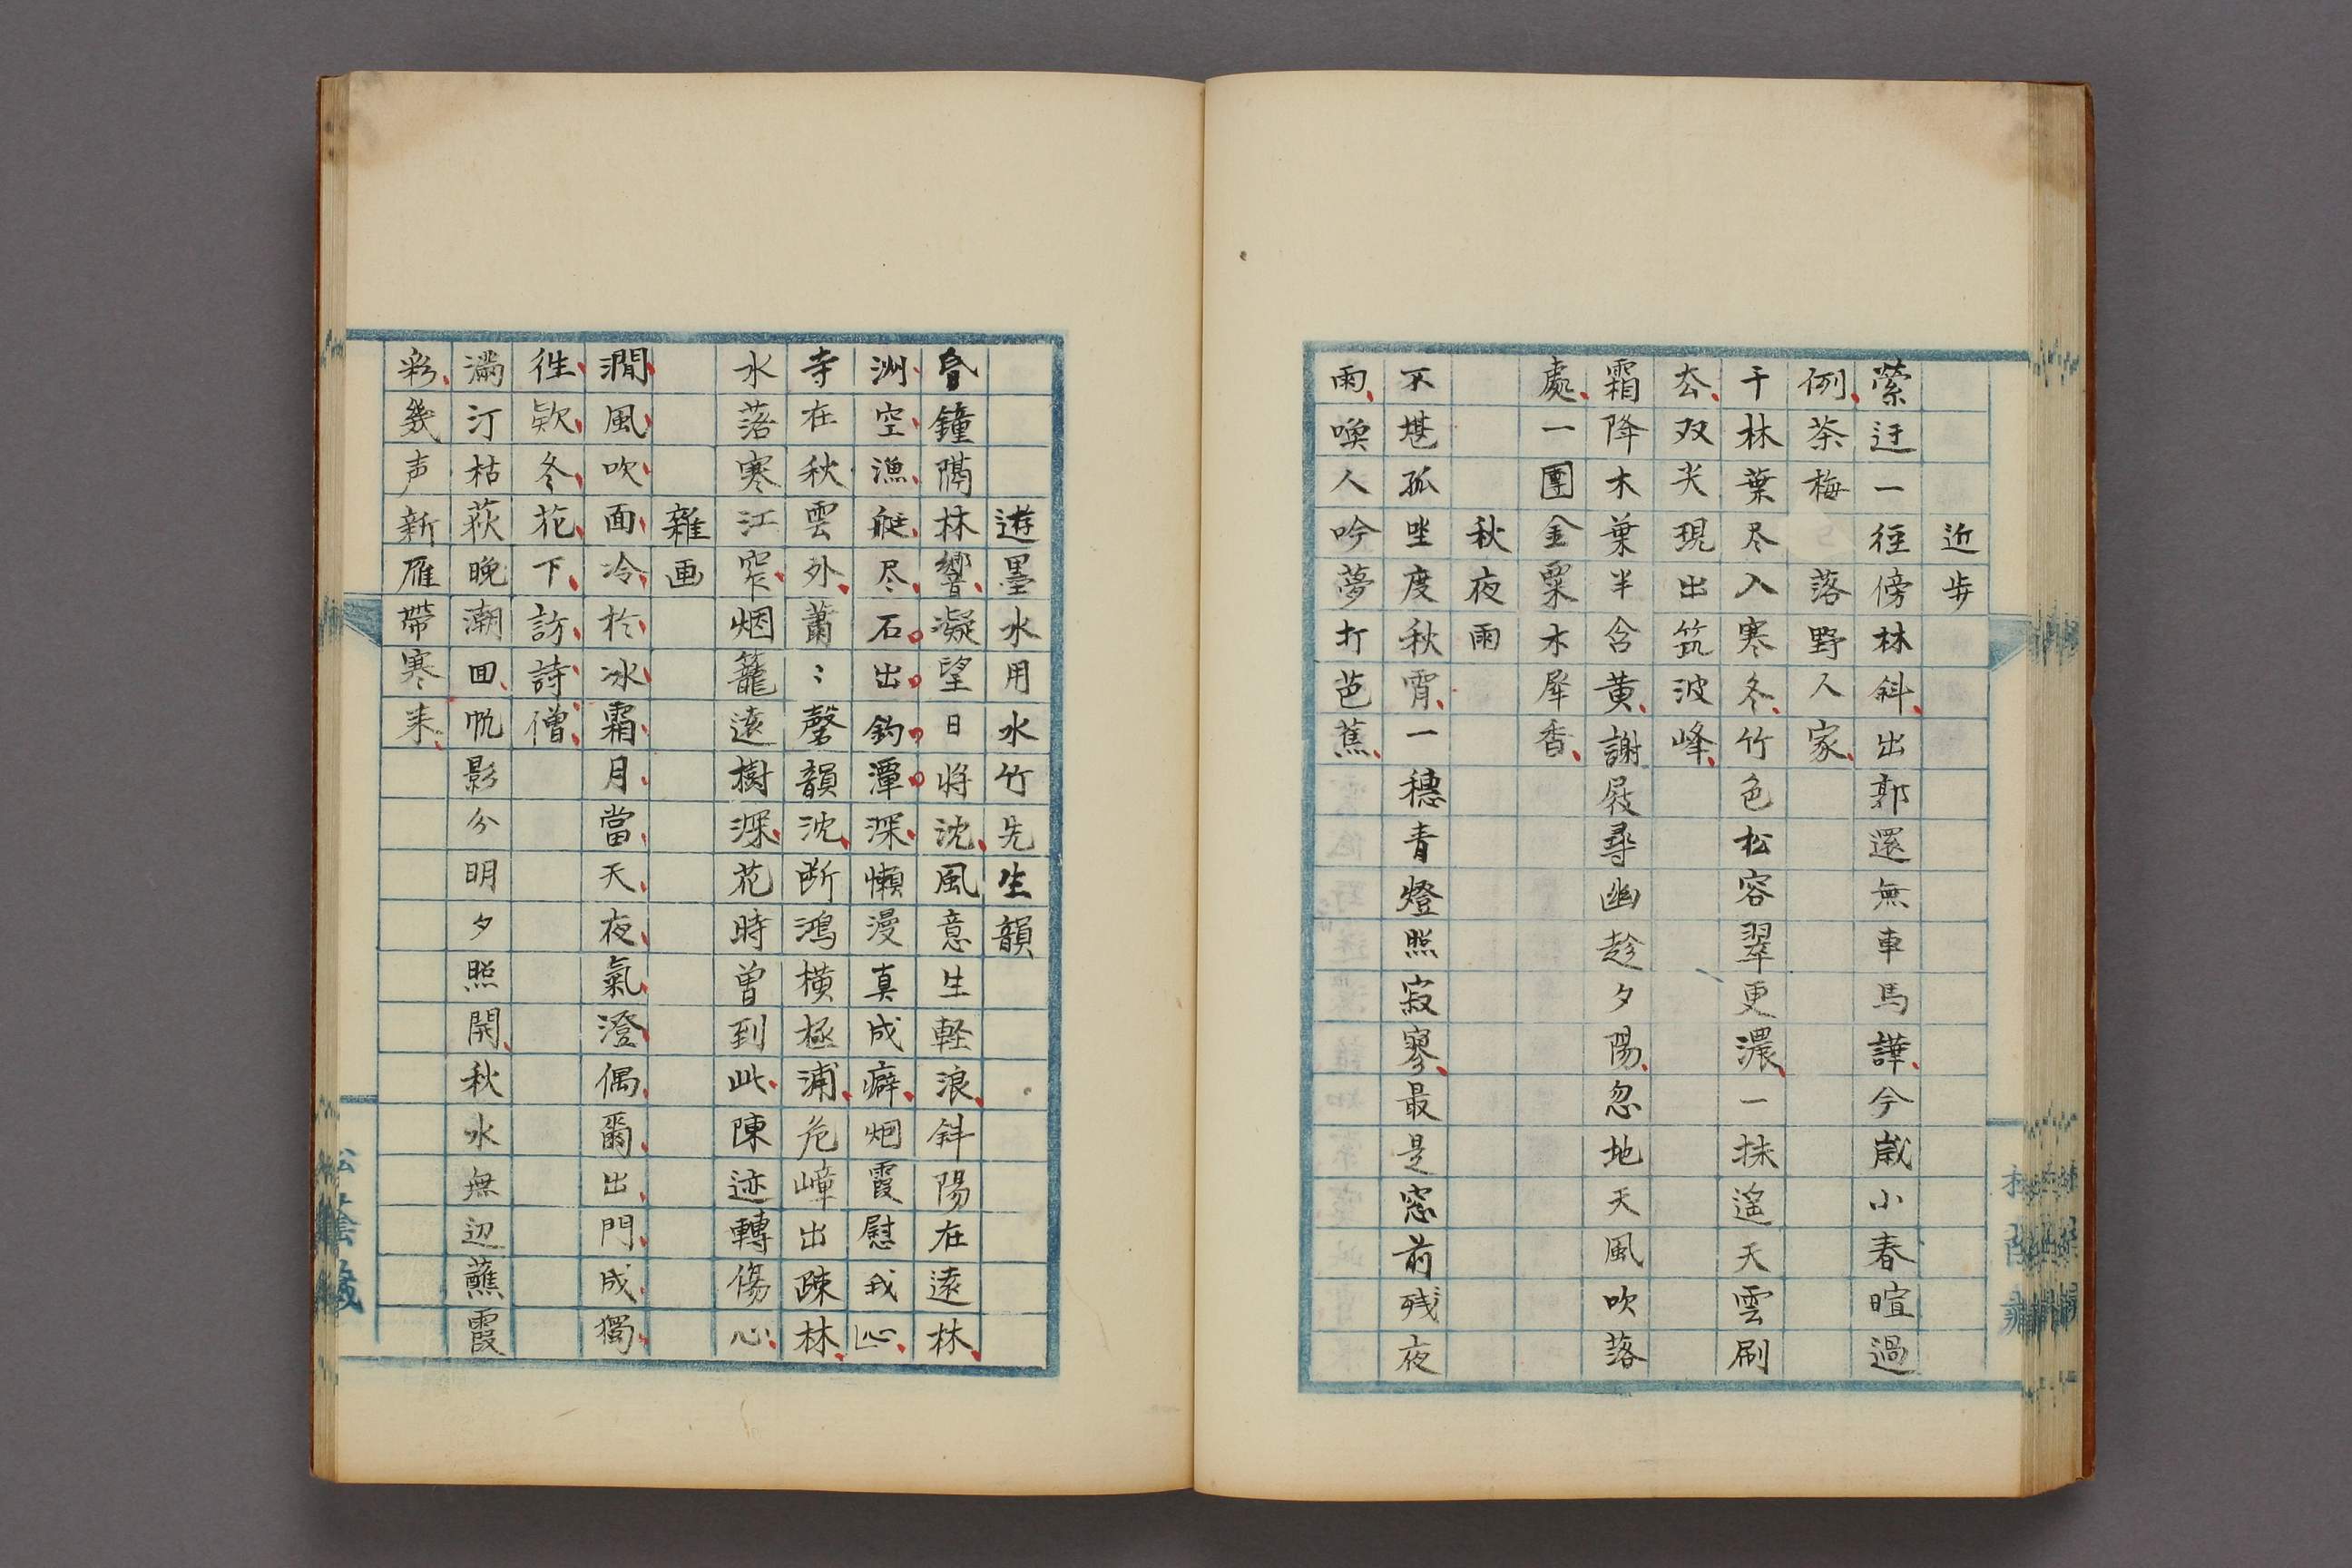 近歩
縈迂一径傍林斜出郭還無車馬譁今歳小春暄過
例茶梅落野人家
千林葉尽入寒冬竹色松容翠更濃一抹遙天雲刷
去双尖現出筑波峰
霜降木葉半含黄謝屐尋幽趁夕陽忽地天風吹落
處一團金粟木犀香
秋夜雨
不堪孤坐度秋宵一穗青燈照寂寥最是窓前残夜
雨喚人吟夢打芭蕉
遊墨水用水竹先生韻
鐘隔林響凝望日将沈風意生軽浪斜陽在遠林
洲空漁艇尽石出釣潭深懶漫真成癖烟霞慰我心
寺在秋雲外蕭〻磬韻沈断鴻横極浦危嶂出踈林
水落寒江窄烟籠遠樹深花時曽到此陳迹轉傷心
雜画
澗風吹面冷於冰霜月當天夜氣澄偶爾出門成獨
往欵冬花下訪詩僧
満汀枯荻晩潮回帆影分明夕照開秋水無辺蘸霞
彩幾声新雁帶寒来